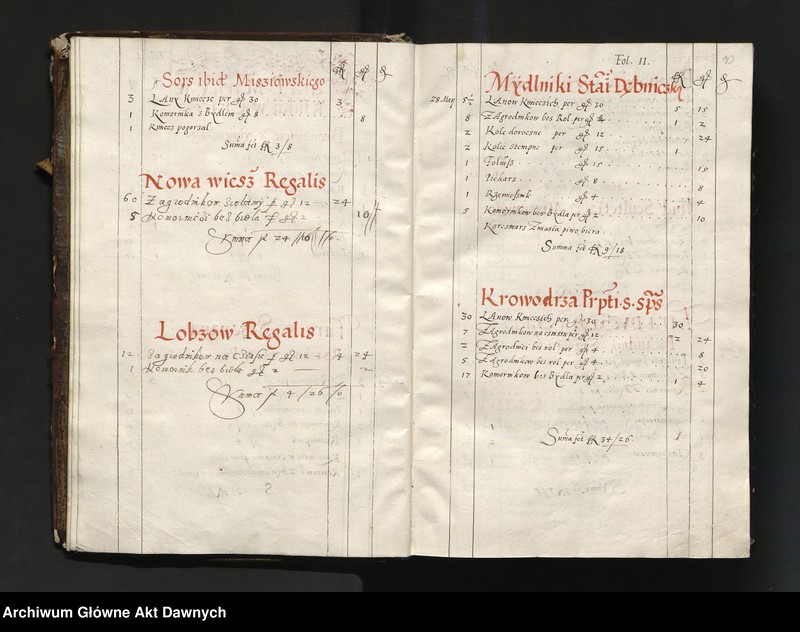 Sors ibid Misziowskiego
3 Łany Kmiecze per gr 30 3
1 Komornika s Bydłem gr 8 8
1 Kmiecz pogorzał
Suma fct 3/8
Nowa wiesz Regalis
60 Zagrodnikow gr 12 24
5 Komornicy bes bidła gr 2 10
Summa 24/10/0
Lobzow Regalis
12 Zagrodnikow na czinszu gr 12 4 24
1 Komornik bes bidła gr 2 2
Summa 4/26/0
Fol. 11. 10
Mydlniki Stai Dębniczky
28 May 5½ Łanow Kmieczich per gr 30 5 15
8 Zagrodnikow bes Rol per gr 4 1 2
2 Kole doroczne per gr 12 24
2 Kolie stempne per gr 15 1
1 Folusz gr 15 15
1 Piekarz gr 8 8
1 gr 4 4
5 Komornikow bes Bydla pr gr 2 10
Karczmarz z miasta piwo biera
Summa fct 9/18
Krowodrza Prpti s. sps
30 Łanow Kmieczich per gr 30 30
7 Zagrodnikow na czinszu pr gr 12 2 24
2 Zagrodnici bes rol per gr 4 8
5 Zagrodnikow bes rol per gr 4 20
17 Komornikow bes Bydla pr gr 2 1 4
Suma fct 34/26
Archiwum Główne Akt Dawnych